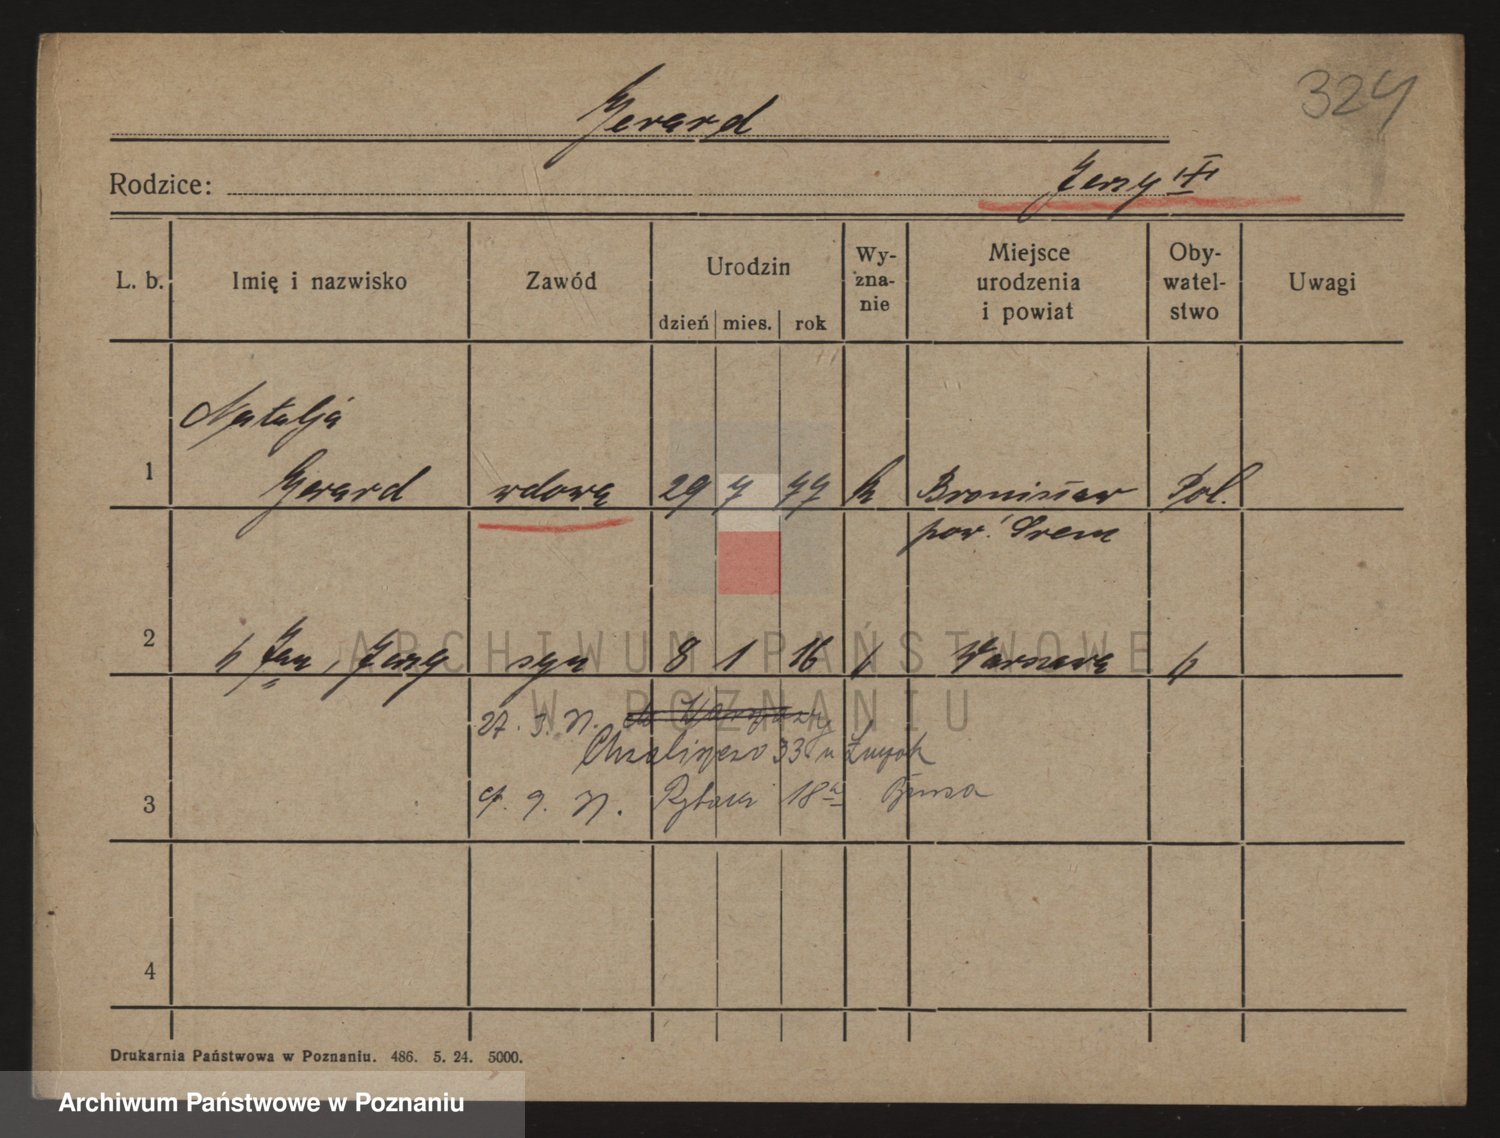 324
Gerard
Rodzice: Jerzy III
L. b. Imię i nazwisko Zawód Urodzin dzień mies. rok Wy-zna-nie Miejsce urodzenia i powiat Oby-watel-stwo Uwagi
Natalja
1 Gerard wdowa 29 7 77 k Bronisław Pol.
pow. Śrem
2 Jan, Jerzy syn 8 1 16 Warszawa
27. 3.
33 u
3 9. 18a Bursa
4
Drukarnia Państwowa w Poznaniu. 486. 5. 24. 5000.
ARCHIWUM PAŃSTWOWE
W POZNANIU
Archiwum Państwowe w Poznaniu